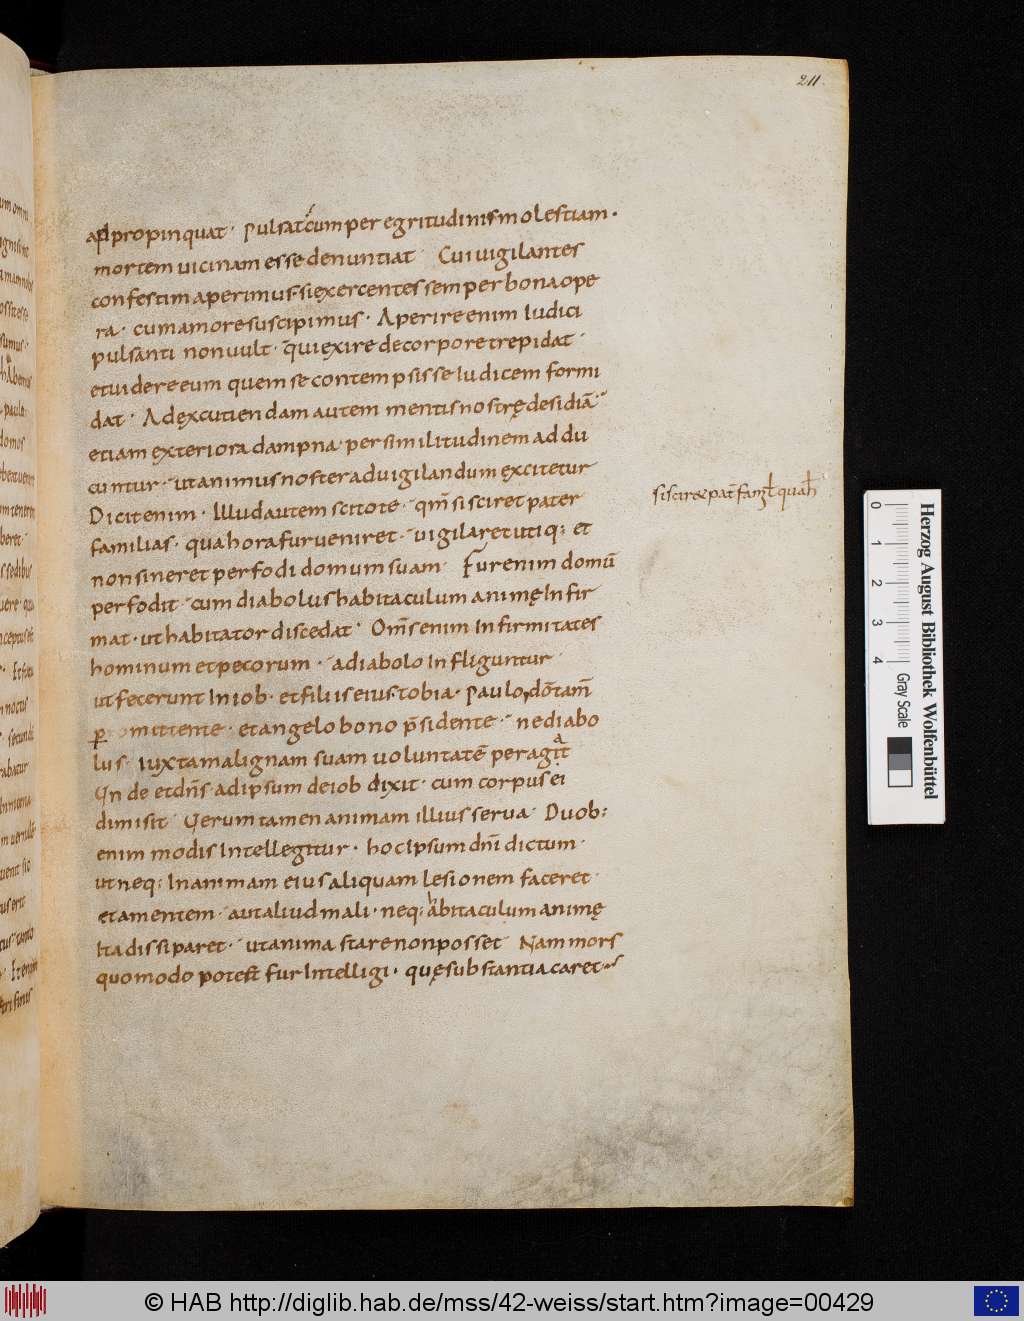 211
adpropinquat· Pulsat cum per egritudinis molestiam·
mortem uicinam esse denuntiat· Cui uigilantes
confestim aperimus· si exercentes semper bona ope
ra· cum amore suscipimus· Aperire enim Iudici
pulsanti non uult· qui exire de corpore trepidat·
et uidere eum quem se contempsisse Iudicem formi
dat· Ad excutiendam autem mentis nostrę desidiā·
etiam exteriora dampna· per similitudinem addu
cuntur· ut animus noster ad uigilandum excitetur
Dicit enim· Illud autem scitote· qm̄ si sciret pater
familias· qua hora fur ueniret· uigilaret utiq; et
non sineret perfodi domum suam· Fur enim domū
perfodit· cum diabolus habitaculum animę Infir
mat· ut habitator discedat· Om̄s enim Infirmitates
hominum et pecorum· a diabolo Infliguntur·
ut fecerunt In iob· et filiis eius tobia· Paulo
mittente· et angelo bono p̄sidente· ne diabo
lus· Iuxta malignam suam uoluntatē peragat
Inde et dn̄s· ad ipsum de iob dixit· cum corpus ei
dimisit· Uerum tamen animam illius serua· Duob;
enim modis Intellegitur· hoc Ipsum dn̄i dictum·
ut neq; In animam eius aliquam lesionem faceret·
et amentem· aut aliud mali· neq; abitaculum animę
Ita dissiparet· ut anima stare non posset· Nam mors
quomodo potest fur Intelligi· quę substantia caret·
si scir& pat̄ fam̄
0
1
2
3
4
Herzog August Bibliothek Wolfenbüttel
Gray Scale
© HAB http://diglib.hab.de/mss/42-weiss/start.htm?image=00429